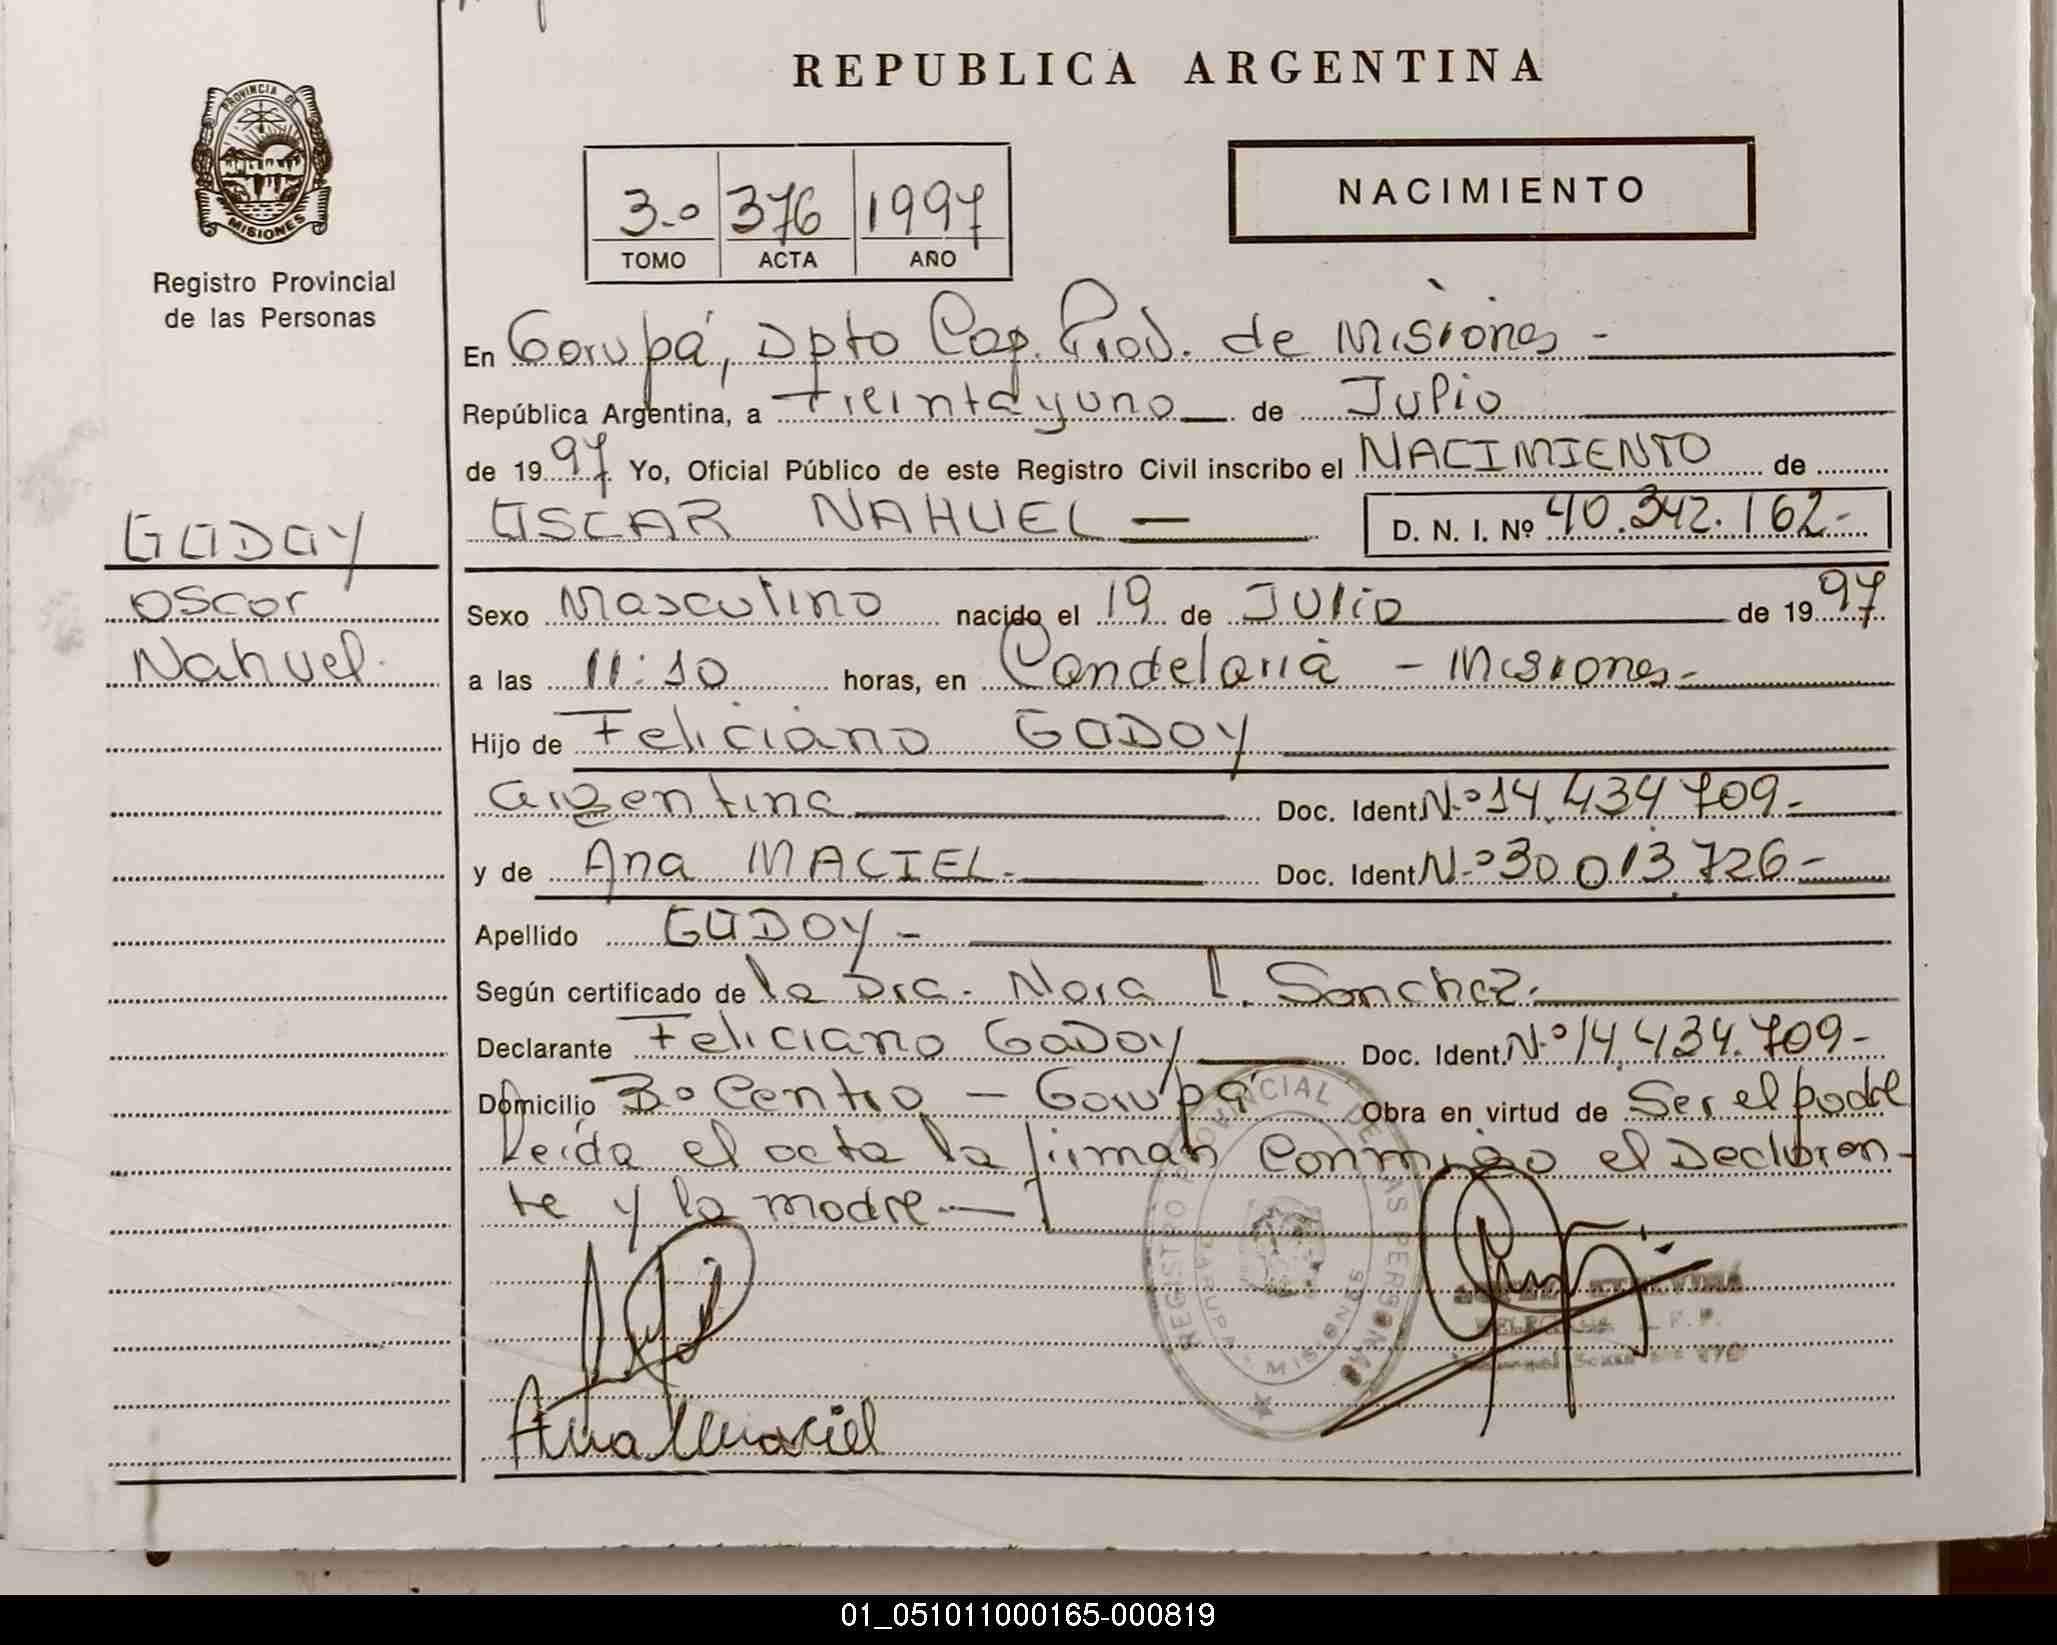 REPUBLICA ARGENTINA
PROVINCIA DE
MISIONES
Registro Provincial
de las Personas
3.o 376 1997
TOMO ACTA AÑO
NACIMIENTO
En Garupá, Dpto Cap. Prov. de Misiones -
República Argentina, a Treintayuno de Julio
de 1997 Yo, Oficial Público de este Registro Civil inscribo el NACIMIENTO de
OSCAR NAHUEL D. N. I. Nº 40.342.162-
GODOY
Oscar
Nahuel.
Sexo Masculino nacido el 19 de Julio de 1997
a las 11:10 horas, en Candelaria - Misiones-
Hijo de Feliciano GODOY
argentina Doc. Ident. N.º 14.434.709-
y de Ana MACIEL- Doc. Ident. N.º 30.013.726-
Apellido GODOY -
Según certificado de la Dra. Nora L. Sanchez.
Declarante Feliciano GODOY Doc. Ident. N.º 14.434.709-
Domicilio Bº Centro - Garupá Obra en virtud de Ser el padre
Leída el acta la firman conmigo el Declaran-
te y la madre.-
REGISTRO PROVINCIAL DE LAS PERSONAS
GARUPA - MISIONES
Ana Maciel
01_051011000165-000819